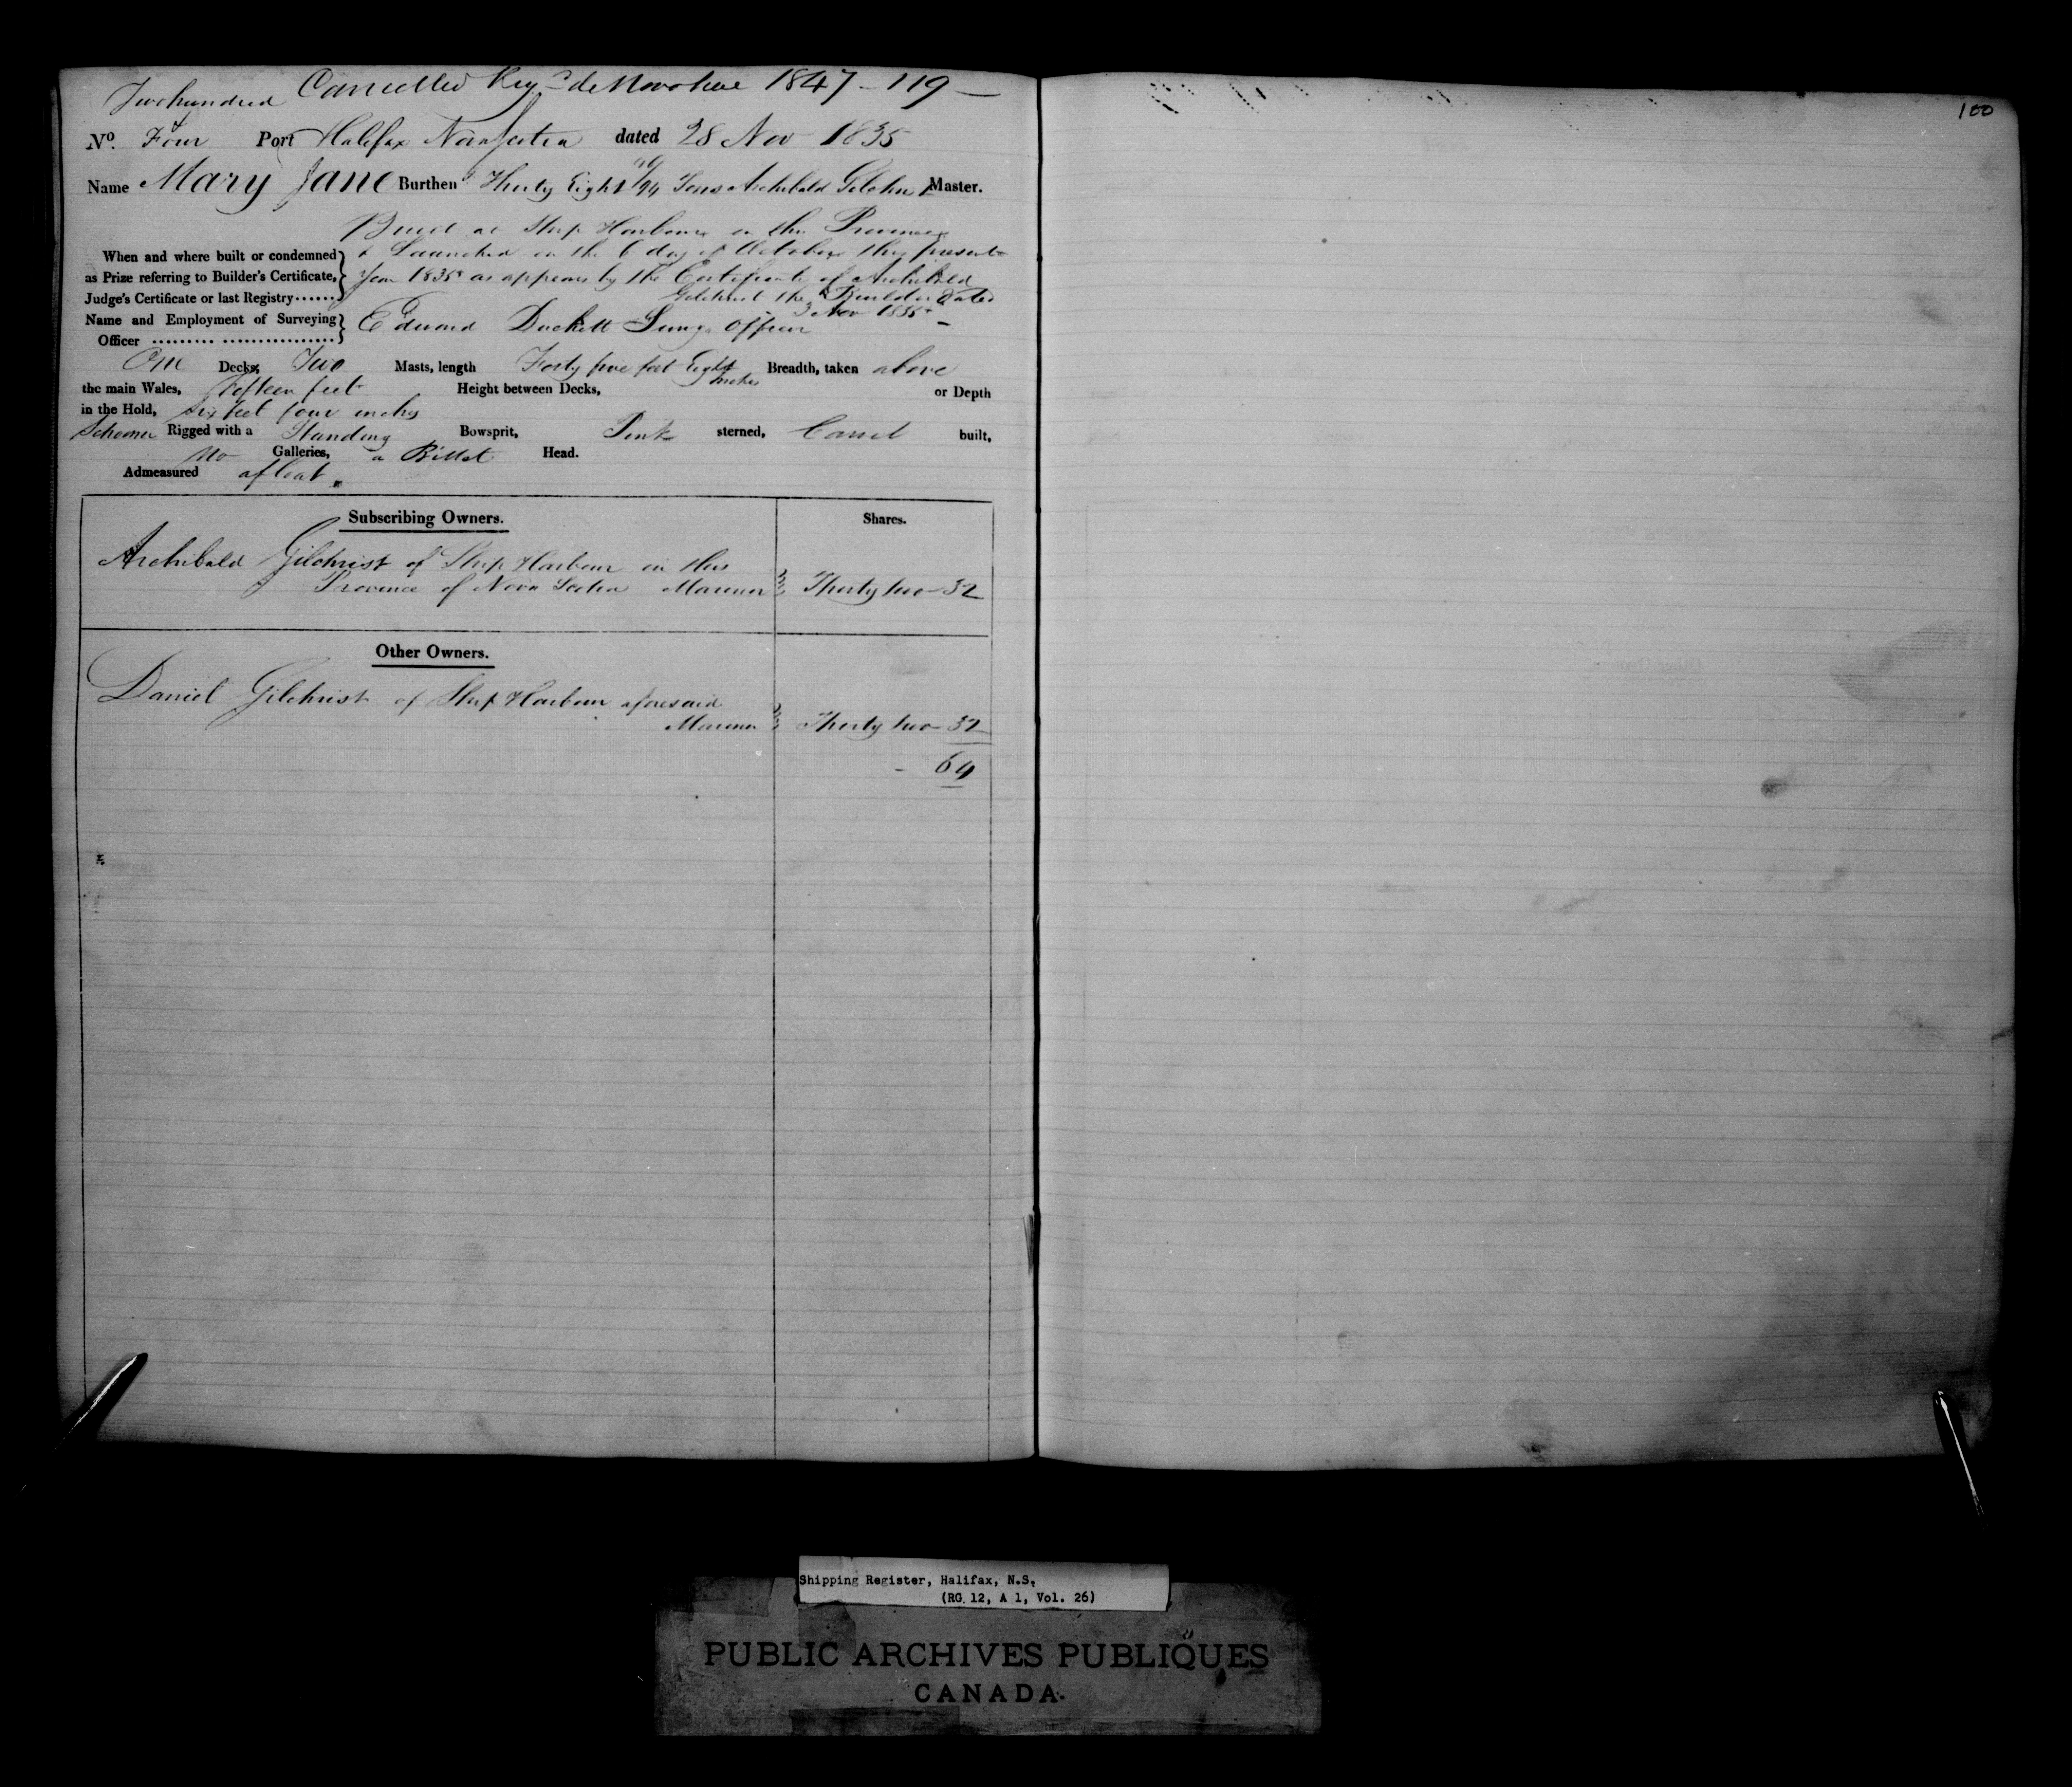 Cancelled Reg de Novo here 1847 - 119 -
Two hundred
No. Four Port Halifax Nova Scotia dated 28 Nov 1835
Name Mary Jane Burthen Thirty Eight /94 Tons Archibald Gilchrist Master.
Built at Ship Harbour in the Province
When and where built or condemned & Launched on the 6 day of October this present
as Prize referring to Builder's Certificate, Year 1835 as appears by the Certificate of Archibald
Judge's Certificate or last Registry....... Gilchrist the Builder dated
3 Nov 1835
Name and Employment of Surveying Edward Duckett Surv. Officer
Officer ......... ................
One Decks, Two Masts, length Forty five feet Eight Breadth, taken above
inches
the main Wales, fifteen feet Height between Decks, or Depth
in the Hold, six feet four inches
Schooner Rigged with a Standing Bowsprit, Pink sterned, Carvel built,
No Galleries, a Billet Head.
Admeasured afloat.
Subscribing Owners. Shares.
Archibald Gilchrist of Ship Harbour in this
Province of Nova Scotia Mariner Thirty two - 32
Other Owners.
Daniel Gilchrist of Ship Harbour aforesaid
Mariner Thirty two - 32
- 64
100
Shipping Register, Halifax, N.S.
(RG 12, A 1, Vol. 26)
PUBLIC ARCHIVES PUBLIQUES
CANADA